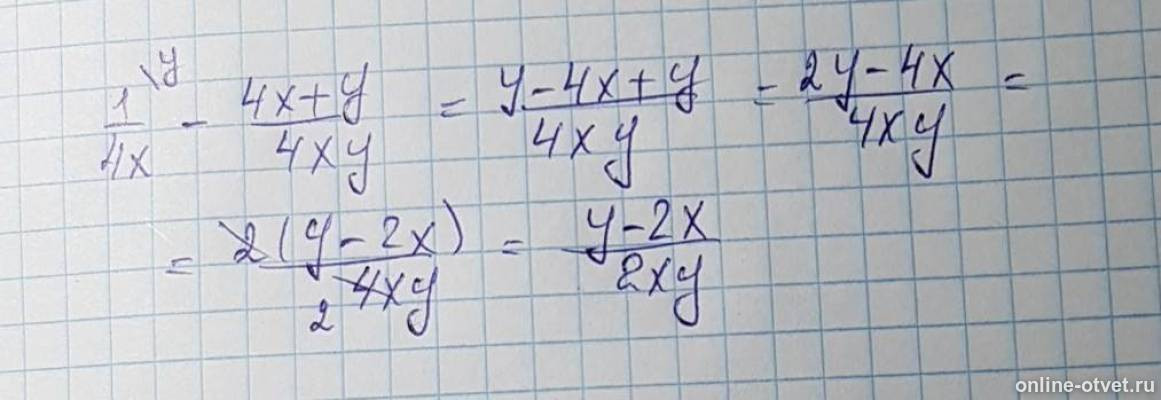 1/4x \y - 4x+y/4xy = y-4x+y/4xy = 2y-4x/4xy =
= 2(y-2x)/4xy 2 = y-2x/2xy
online-otvet.ru